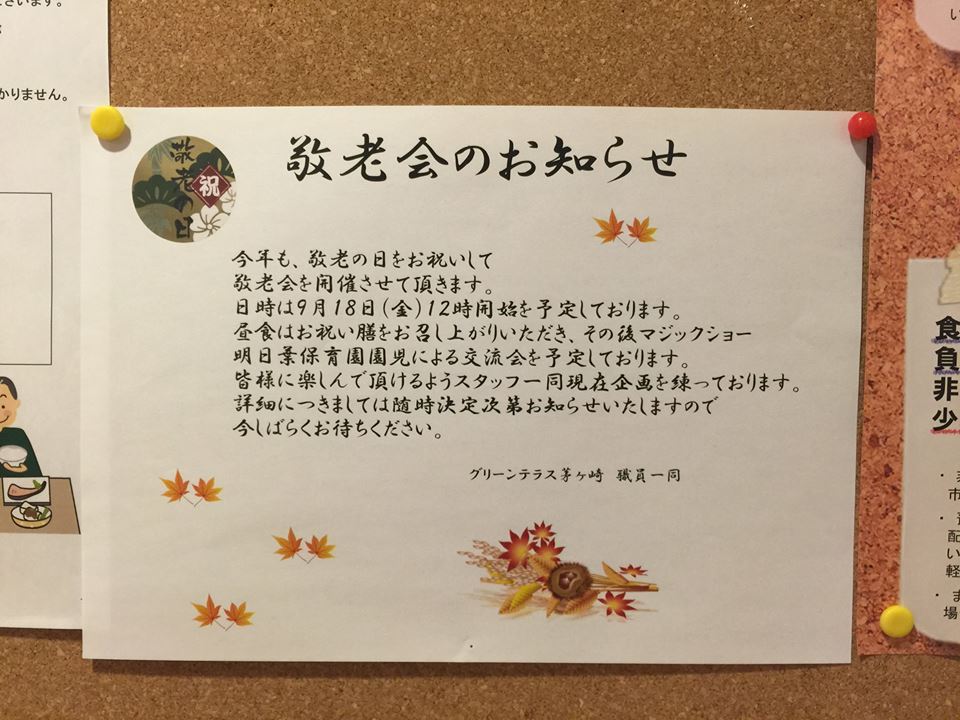 ざいます。
かりません。
敬老の日
祝
敬老会のお知らせ
今年も、敬老の日をお祝いして
敬老会を開催させて頂きます。
日時は9月18日(金)12時開始を予定しております。
昼食はお祝い膳をお召し上がりいただき、その後マジックショー
明日葉保育園園児による交流会を予定しております。
皆様に楽しんで頂けるようスタッフ一同現在企画を練っております。
詳細につきましては随時決定次第お知らせいたしますので
今しばらくお待ちください。
グリーンテラス茅ヶ崎 職員一同
い
食
負
非
少
市
配
い
軽
・ま
場